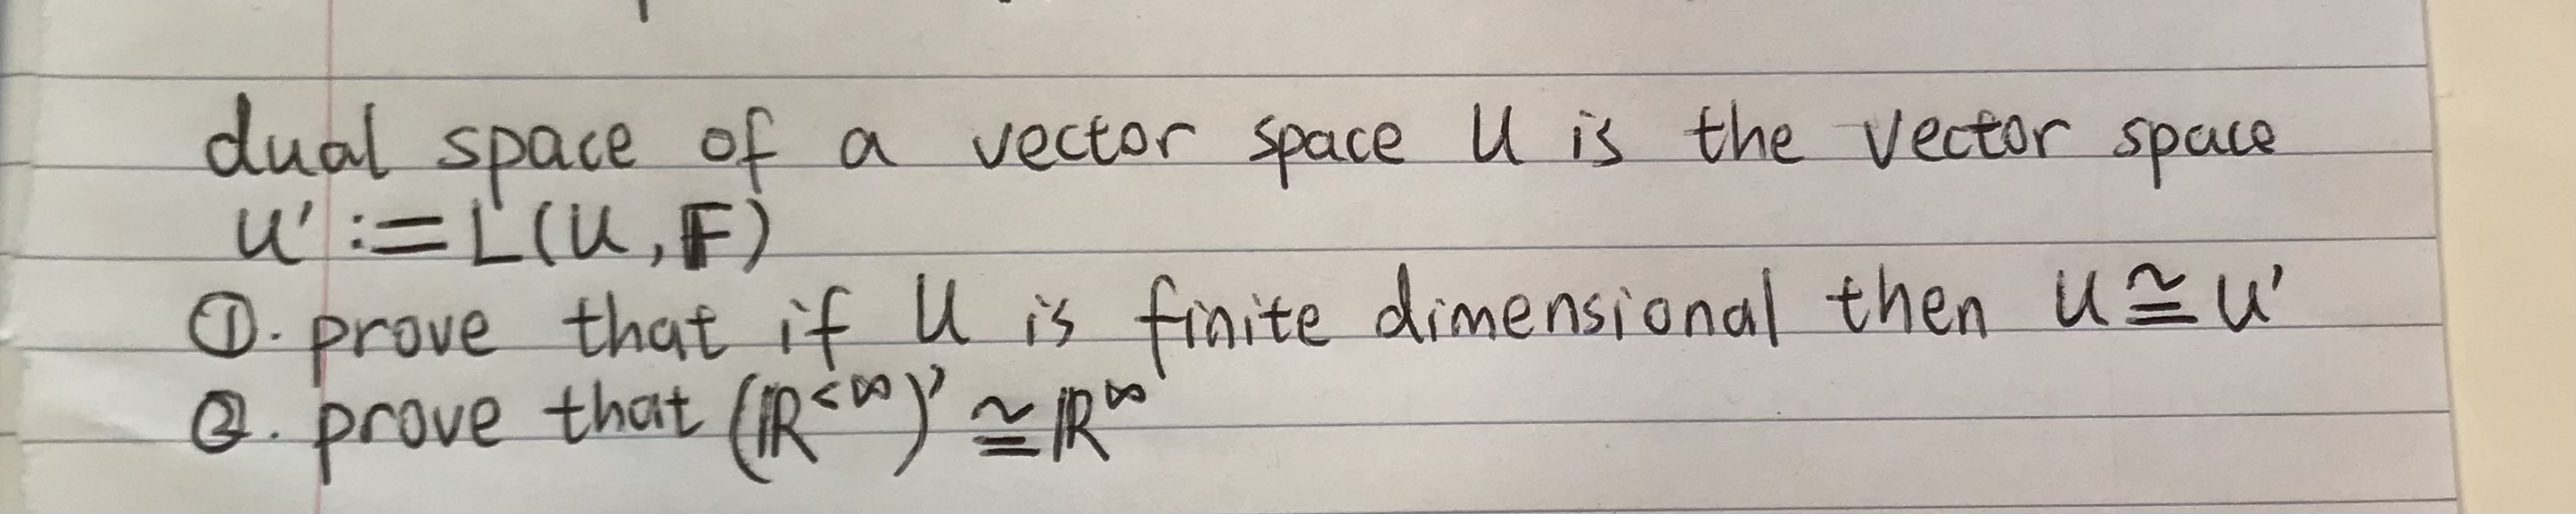 dual space of a vector space U is the vector space
U' := L(U, F)
①. prove that if U is finite dimensional then U ≅ U'
②. prove that (ℝ^{<∞})' ≅ ℝ^∞